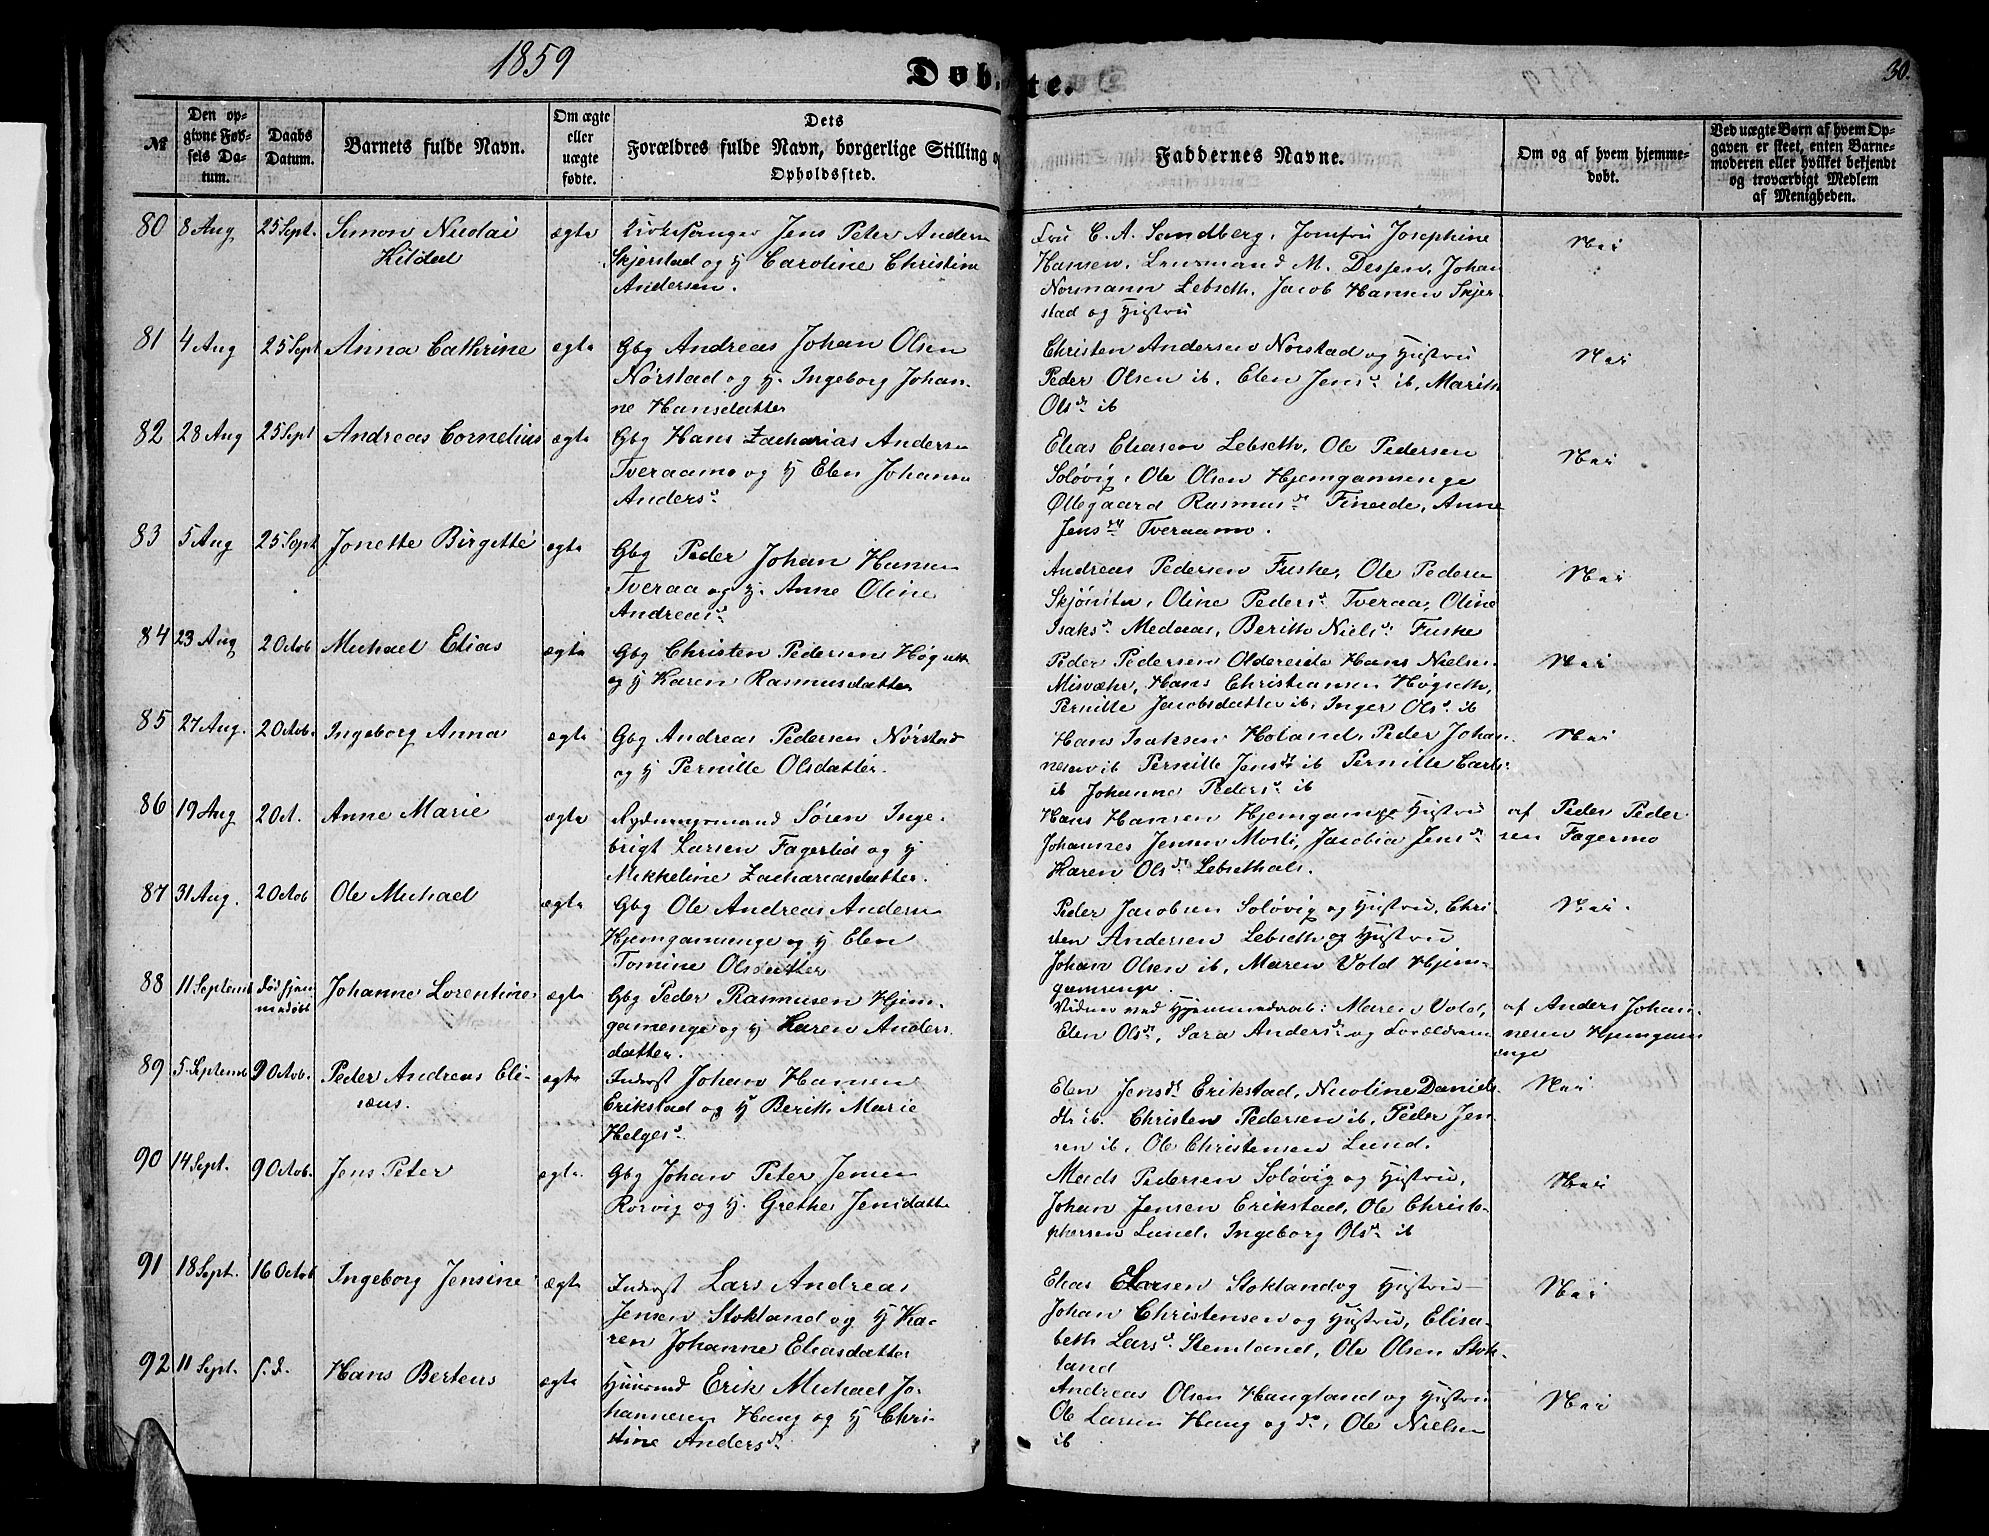 1859
Døbte.
30.
№
Den opgivne Fødsels Datum.
Daabs Datum.
Barnets fulde Navn.
Om ægte eller uægte fødte.
Dets Forældres fulde Navn, borgerlige Stilling og Opholdssted.
Faddernes Navne.
Om og af hvem hjemmedøbt.
Ved uægte Børn af hvem Opgaven er skeet, enten Barnemoderen eller hvilket bekjendt og troværdigt Medlem af Menigheden.
80 8 Aug 25 Sept. Simon Nicolai ægte Kirkesanger Jens Peter Andersen
Hildal Skjerstad og H Caroline Christine
Andersen.
Fru C. A. Sandberg, Jomfru Josephine Nei
Hansen, Lensmand M. Desjen, Johan
Normann Lebseth, Jacob Hansen Skjer-
stad og Hustru
81 4 Aug 25 Sept Anna Cathrine ægte Gbg Andreas Johan Olsen
Nørstad og H. Ingeborg Johan-
ne Hansdatter
Christen Andersen Nørstad og Hustru Nei
Peder Olsen ib, Elen Jensd ib, Marith
Olsdr ib
82 28 Aug 25 Sept Andreas Cornelius ægte Gbg Hans Zacharias Andersen
Tveraamo og H Elen Johanne
Andersd.
Elias Eliasen Lebseth, Ole Pedersen Nei
Soløvig, Ole Olsen Hjemgamsenge
Øllegaard Rasmusdr Fineide, Anne
Jensdr Tveraamo.
83 5 Aug 25 Sept Jonette Birgitte ægte Gbg Peder Johan Hansen
Tveraa og H. Anne Oline
Andreasd.
Andreas Pedersen Fuske, Ole Pedersen Nei
Oline Pedersd. Tveraa, Oline
Isaksd. Medaas, Berith Nielsd. Fuske
84 23 Aug 2 Octob Michael Elias ægte Gbg Christen Pedersen Høgseth
og H Karen Rasmusdatter
Peder Pedersen Oldereide Hans Nielsen Nei
Misvæhr, Hans Christiansen Høgseth,
Pernille Jacobsdatter ib, Inger Olsd. ib
85 27 Aug. 2 Octob. Ingeborg Anna ægte Gbg Andreas Pedersen Nørstad
og H Pernille Olsdatter.
Hans Isaksen Høland, Peder Johan- Nei
nesen ib Pernille Jensdr ib Pernille Carls-
ib Johanne Pedersd ib
86 19 Aug 2 Oct. Anne Marie ægte Rydningsmand Søren Inge-
brigt Larsen Fagerlid og H
Mikkeline Zachariasdatter.
Hans Hansen Hjemgamsenge Hustru af Peder Peder
Johannes Jensen Mosti, Jacobia Jensdr sen Fagermo
Karen Olsdr Lebsethals.
87 31 Aug. 2 Octob Ole Michael ægte Gbg Ole Andreas Andersen
Hjemgamsenge og H Elen
Tomine Olsdatter
Peder Jacobsen Soløvig og Hustru, Chri- Nei.
sten Andersen Lebseth og Hustru
Johan Olsen ib, Maren Vold Hjem-
gamsenge.
88 11 Septemb død hjem- Johanne Lorentine ægte Gbg Peder Rasmusen Hjem-
medøbt gamsenge og H Karen Anders
datter.
Vidner ved Hjemmedaab: Maren Vold, af Anders Johan-
Elen Olsdr, Sara Andersdr og Forældrene nesen Hjemgam
senge
89 5 Septemb 9 Octob. Peder Andreas Eli- ægte Inderst Johan Hansen
sæus. Erikstad og H Berith Marie
Helgesd.
Elen Jensdr Erikstad, Nicoline Daniels- Nei
dtr ib. Christen Pedersen ib, Peder Jen-
sen ib, Ole Christensen Lund.
90 14 Sept. 9 Octob. Jens Peter ægte. Gbg Johan Peter Jensen
Rorvig og H. Grethe Jensdatter
Mads Pedersen Soløvig og Hustru, Nei
Johan Jensen Erikstad, Ole Christo-
phersen Lund, Ingeborg Olsdr ib
91 18 Sept. 16 Octob Ingeborg Jensine ægte Inderst Lars Andreas
Jensen Stokland og H Ka-
ren Johanne Eliasdatter
Elias Larsen Stokland og Hustru— Nei
Johan Christensen og Hustru, Elisa-
beth Larsd. Stemland, Ole Olsen Stok-
land
92 11 Sept. s. D. Hans Berteus ægte Huusmd Erik Michael Jo-
hannesen Haug og H Chri-
stine Andersdr
Andreas Olsen Haugland og Hustru Nei
Ole Larsen Haug og do, Ole Nielsen
ib